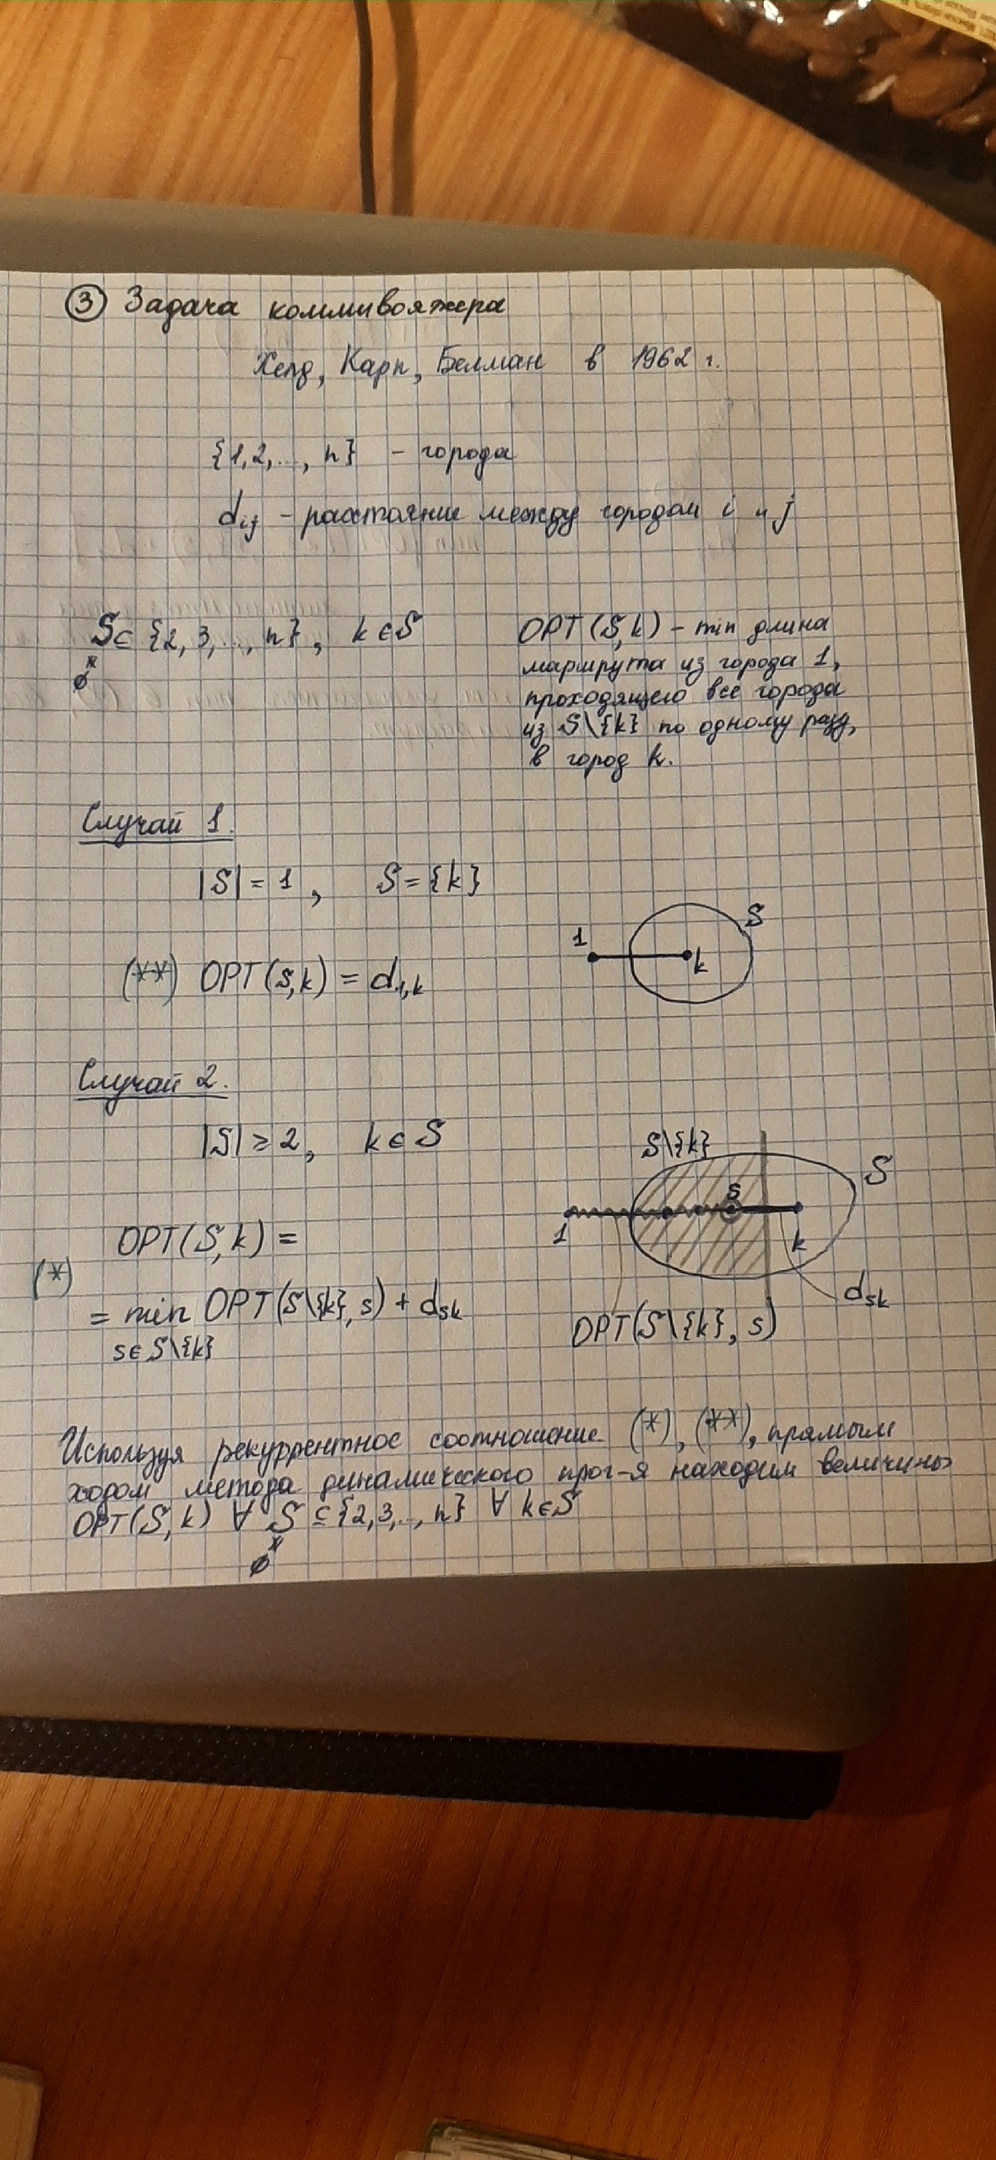 ③ Задача коммивояжера
Хелд, Карп, Белман в 1962 г.
{1,2,..., n} - города
dij - расстояние между городом i и j
S ⊆ {2, 3,..., n}, k ∈ S
∅
OPT(S,k) - min длина
маршрута из города 1,
проходящего все города
из S\{k} по одному разу,
в город k.
Случай 1.
|S| = 1, S = {k}
1 k S
(**) OPT(s,k) = d1,k
Случай 2.
|S| ≥ 2, k ∈ S
S\{k} S
1 s k
OPT(S,k) =
(*)
= min OPT(S\{k}, s) + dsk
s ∈ S\{k}
dsk
OPT(S\{k}, s)
Используя рекуррентное соотношение (*), (**), прямым
ходом метода динамического прог-я находим величины
OPT(S,k) ∀ S ⊆ {2,3,..., n} ∀ k ∈ S
∅